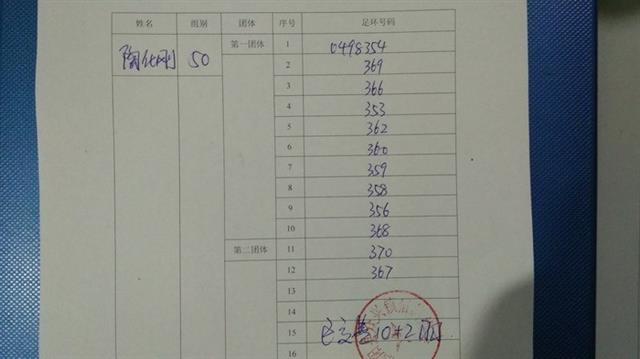 姓名 组别 团体 序号 足环号码
陶化刚 50 第一团体 1 0498354
2 369
3 366
4 353
5 362
6 360
7 359
8 358
9 356
10 368
第二团体 11 370
12 367
13
14
15 已交费10+2羽
16